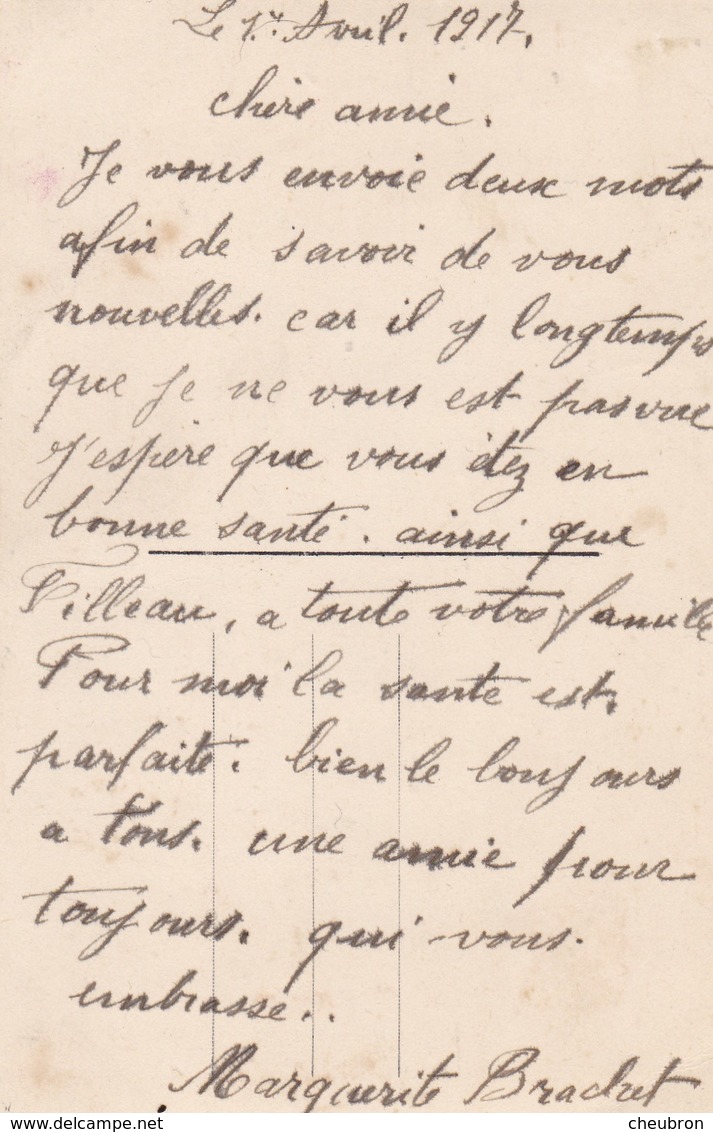 Le 1er Avril. 1917.
chère amie.
Je vous envoie deux mots
afin de savoir de vous
nouvelles. car il y longtemps
que je ne vous est pas vue
J'espère que vous étez en
bonne santé. ainsi que
Filleau, a toute votre famille
Pour moi la sante est.
parfaite. bien le bonjours
a Tous. une amie pour
toujours. qui vous.
embrasse..
Marguerite Brachet
www.delcampe.net
cheubron